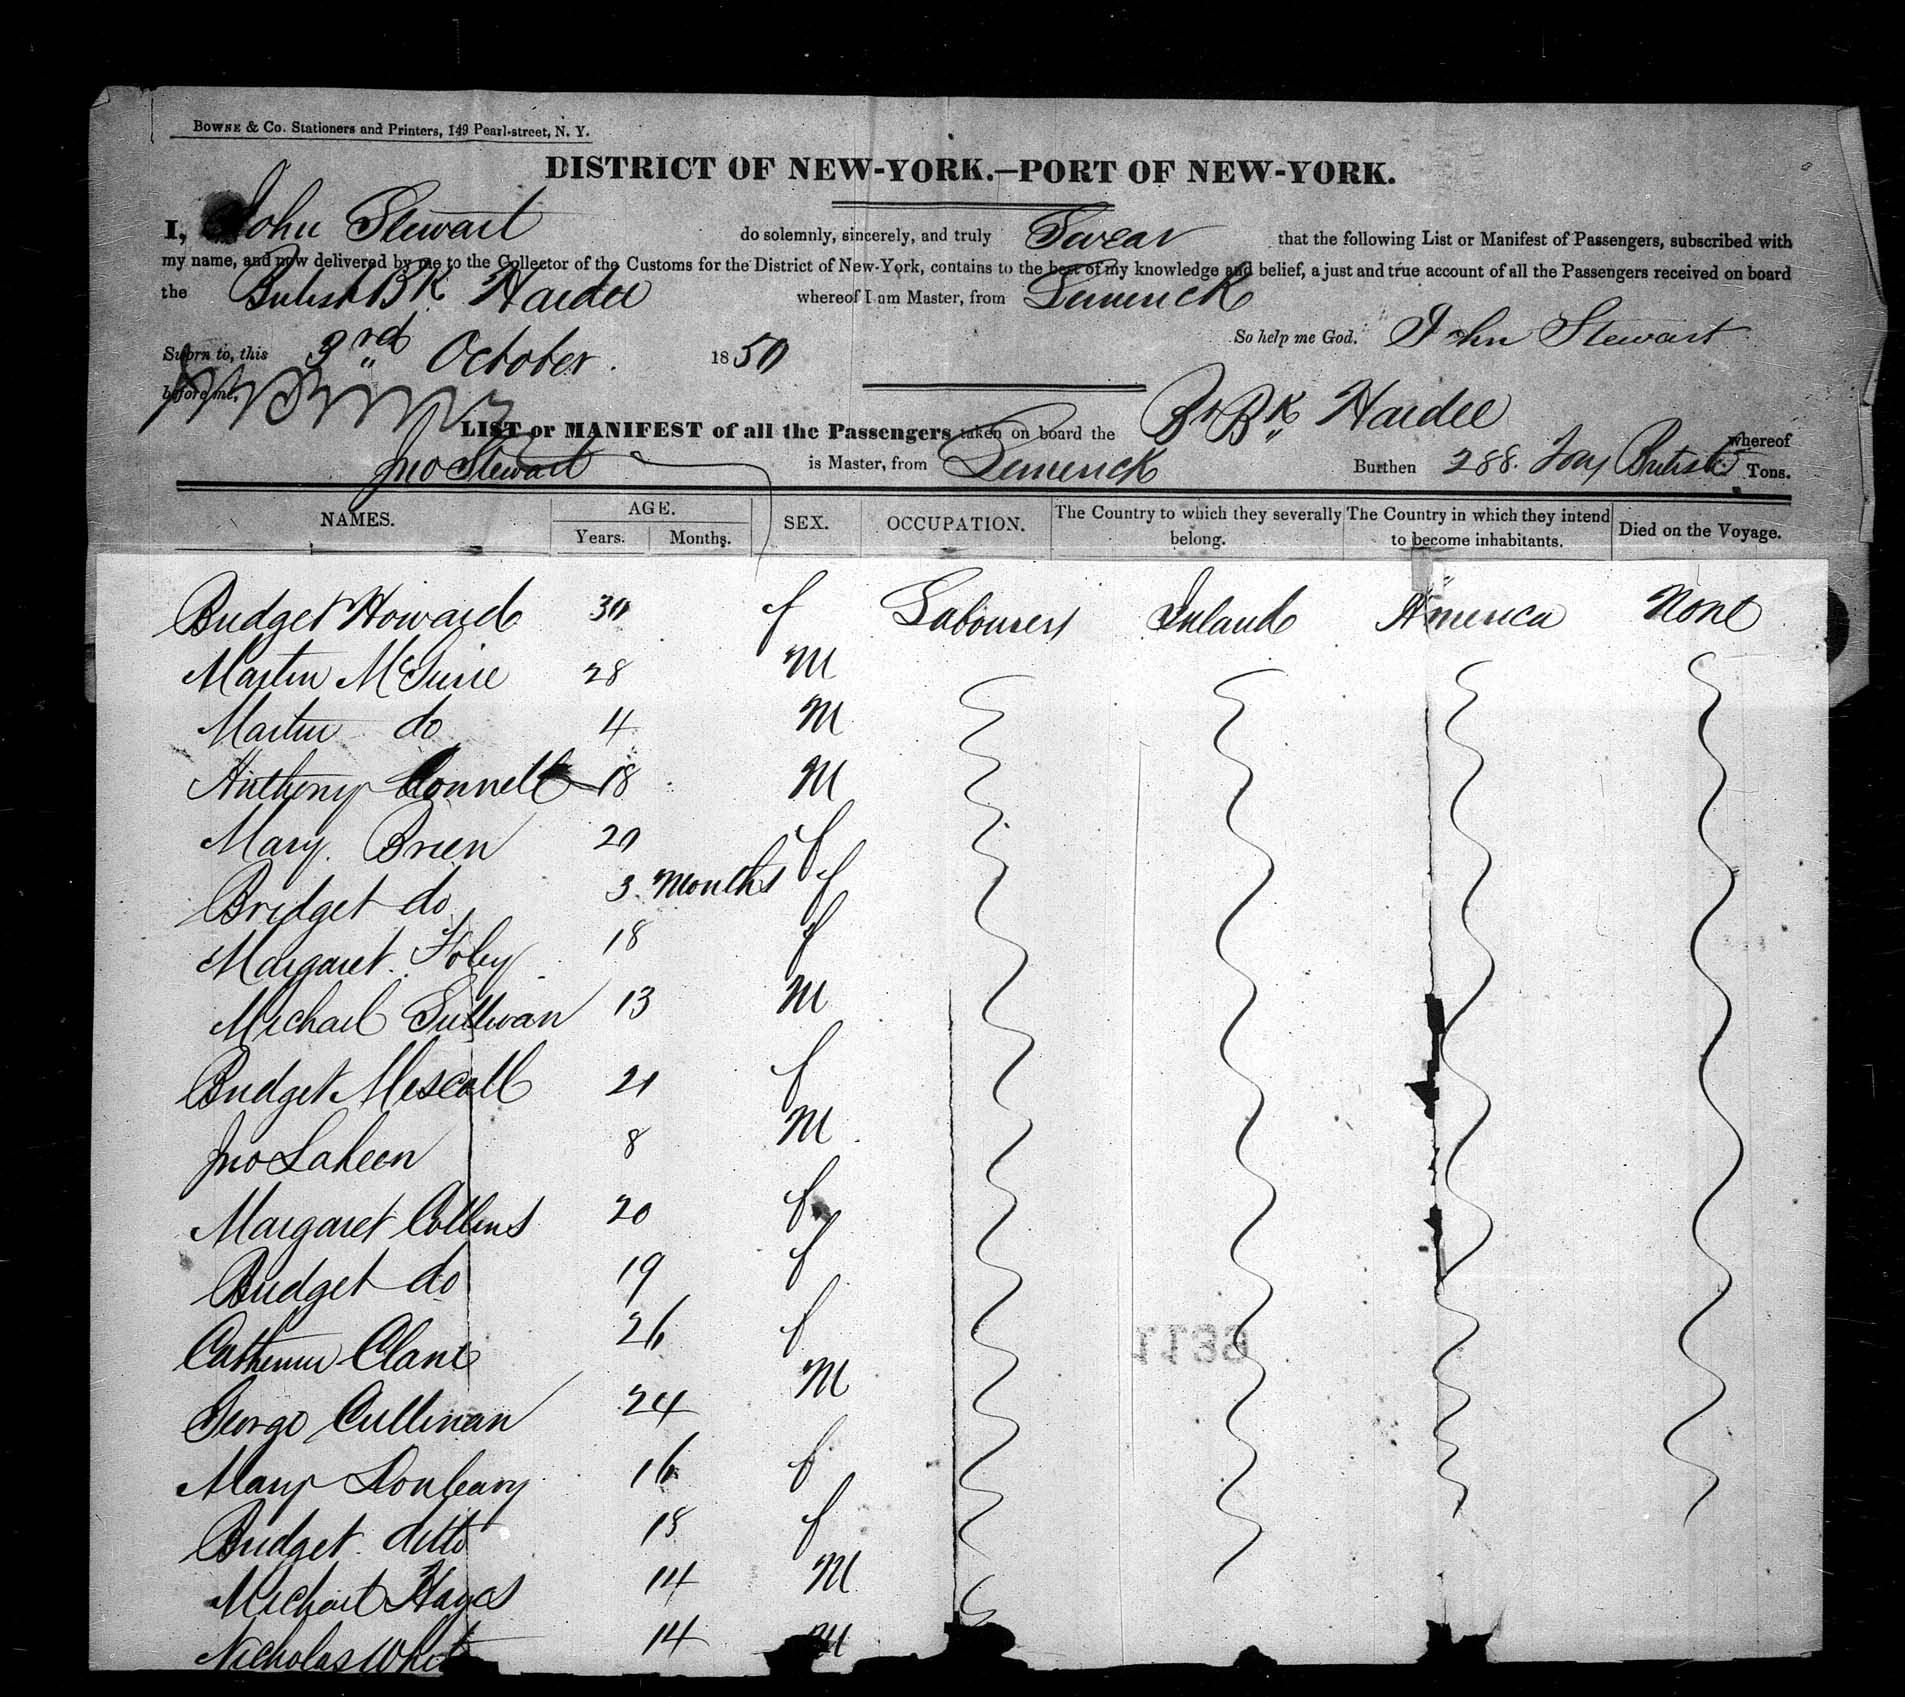 BOWNE & Co. Stationers and Printers, 149 Pearl-street, N. Y.
DISTRICT OF NEW-YORK.—PORT OF NEW-YORK.
I, John Stewart do solemnly, sincerely, and truly Swear that the following List or Manifest of Passengers, subscribed with
my name, and now delivered by me to the Collector of the Customs for the District of New-York, contains to the best of my knowledge and belief, a just and true account of all the Passengers received on board
the British BK Haidee whereof I am Master, from Limerick
So help me God. John Stewart
Sworn to, this 3rd October 1850
before me,
LIST or MANIFEST of all the Passengers taken on board the Br BK Haidee whereof
Jno Stewart is Master, from Limerick Burthen 288. Tons British Tons.
NAMES. AGE. Years. Months. SEX. OCCUPATION. The Country to which they severally belong. The Country in which they intend to become inhabitants. Died on the Voyage.
Bridget Howard 30 f Labourers Ireland America None
Martin McGuire 28 M
Martin do 4 M
Anthony Connell 18 M
Mary Brien 20 f
Bridget do 3 Months f
Margaret Foley 18 f
Michael Sullivan 13 M
Bridget Mescall 21 f
Jno Laheen 8 M
Margaret Collins 20 f
Bridget do 19 f
Catherine Clane 26 f
George Cullinan 24 M
Mary 16 f
Bridget ditto 18 f
Michael Hayes 14 M
Nicholas White 14 M
1139